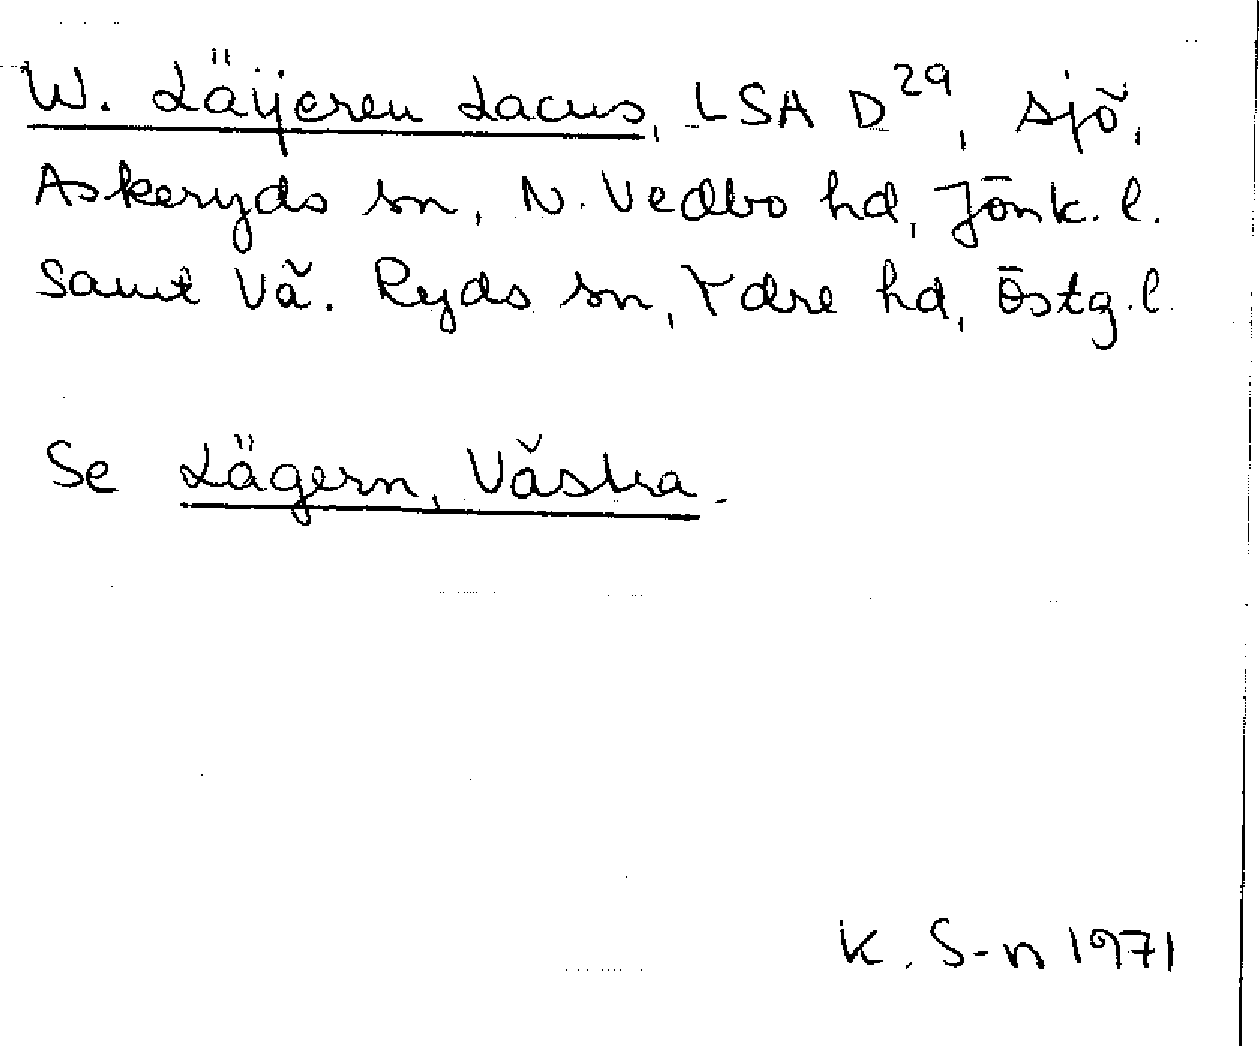 W. Läijeren Lacus, LSA D29, sjö,
Askeryds sn, N. Vedbo hd, Jönk. l.
samt Vä. Ryds sn, Ydre hd, Östg. l.
Se Lägern, Västra.
K. S-n 1971